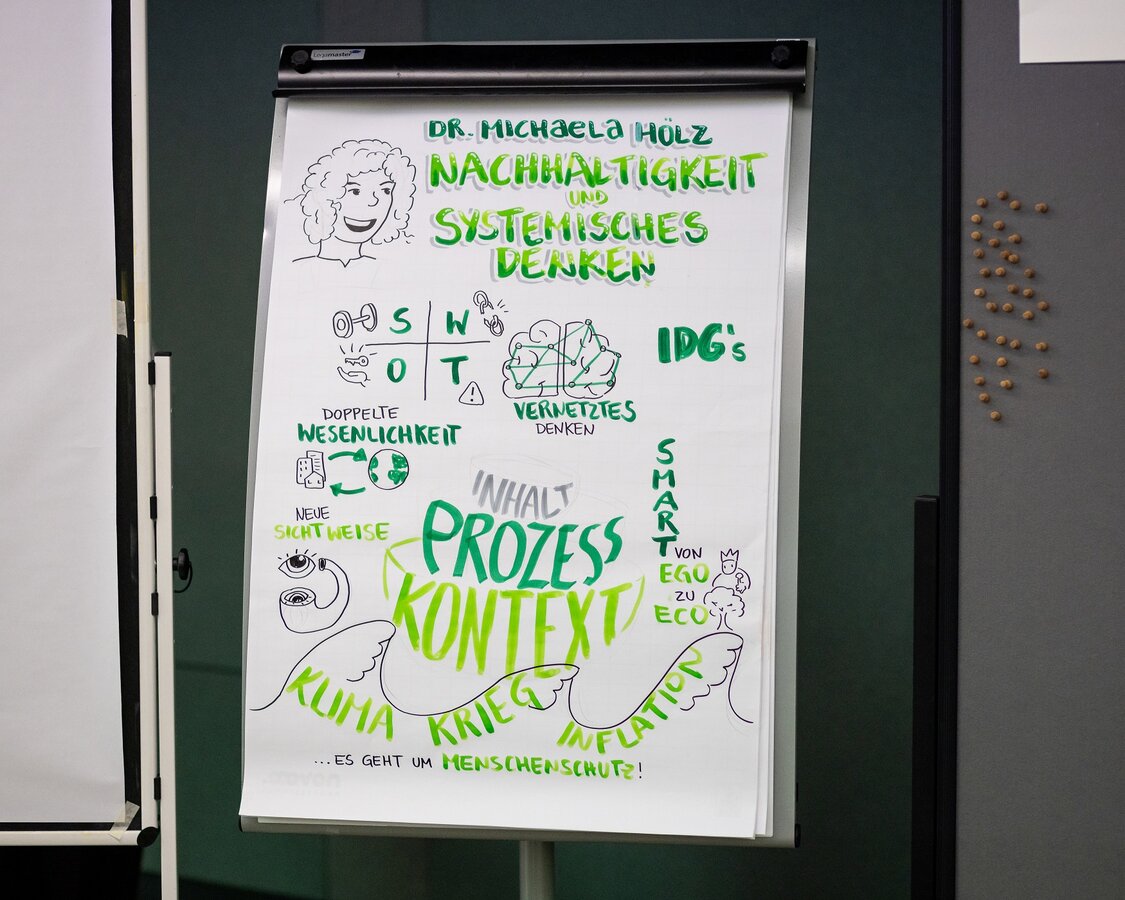 Legamaster
DR. MICHAELA HÖLZ
NACHHALTIGKEIT
UND
SYSTEMISCHES
DENKEN
S W
O T
!
VERNETZTES
DENKEN
IDG's
DOPPELTE
WESENLICHKEIT
NEUE
SICHTWEISE
INHALT
PROZESS
KONTEXT
SMART
VON
EGO
ZU
ECO
KLIMA
KRIEG
INFLATION
...ES GEHT UM MENSCHENSCHUTZ!